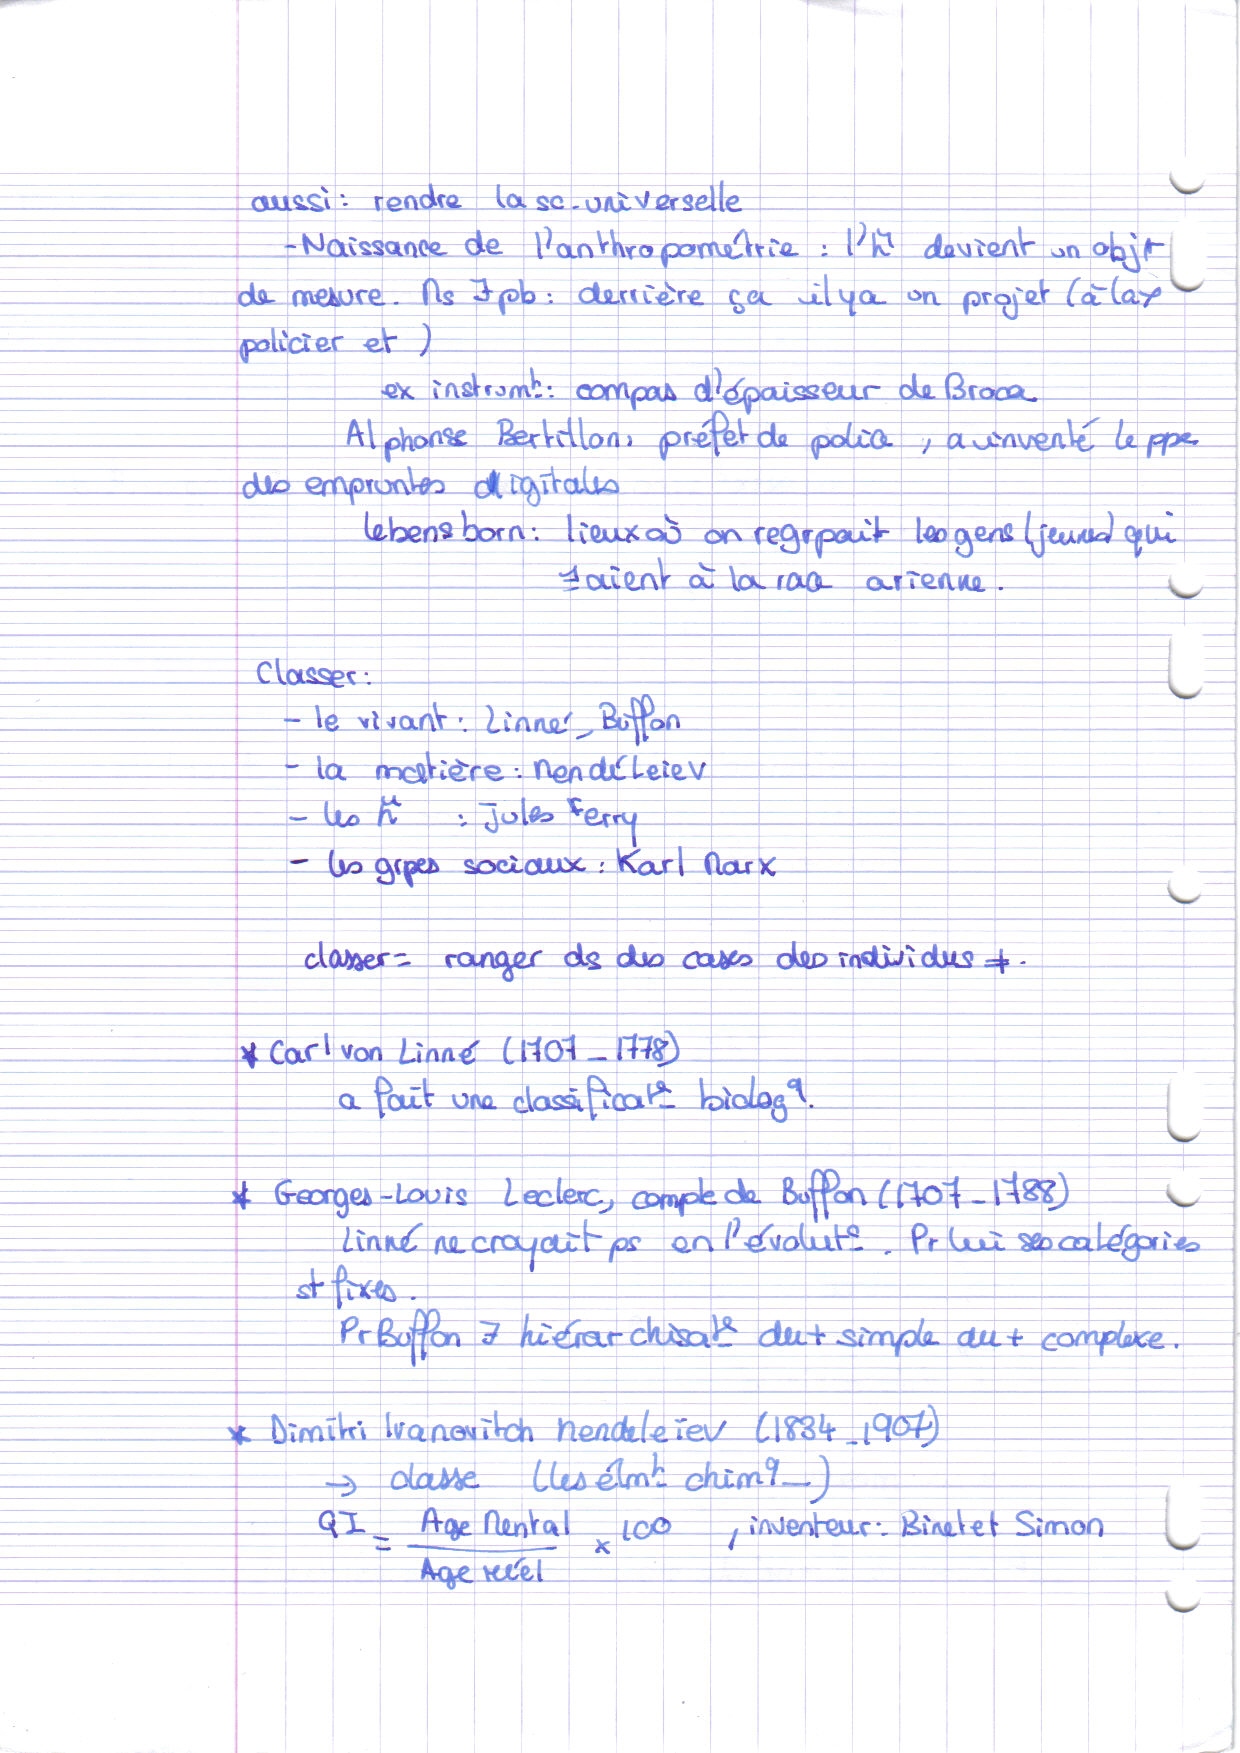 aussi : rendre la sc. universelle
- Naissance de l'anthropométrie : l'h devient un objt
de mesure. Ms ∃ pb : derrière ça il y a un projet (à la
policier et )
ex instrumt : compas d'épaisseur de Broca
Alphonse Bertillon, préfet de police, a inventé le ppe
des empruntes digitales
lebensborn : lieux où on regrpait les gens (jeunes) qui
≠aient à la race arienne.
Classer :
- le vivant : Linné _ Buffon
- la matière : Mendéleiev
- les h : Jules Ferry
- les grpes sociaux : Karl Marx
classer = ranger ds des cases des individus ≠.
* Carl von Linné (1707 _ 1778)
a fait une classificat° biologq.
* Georges-Louis Leclerc, compte de Buffon (1707 _ 1788)
Linné ne croyait ps en l'évolut°. Pr lui ses catégories
st fixes.
Pr Buffon ∃ hiérarchisat° du + simple au + complexe.
* Dimitri Ivanovitch Mendeleïev (1834 _ 1907)
→ classe (les élmt chimq _)
QI = Age Mental × 100 , inventeur : Binet et Simon
Age réel